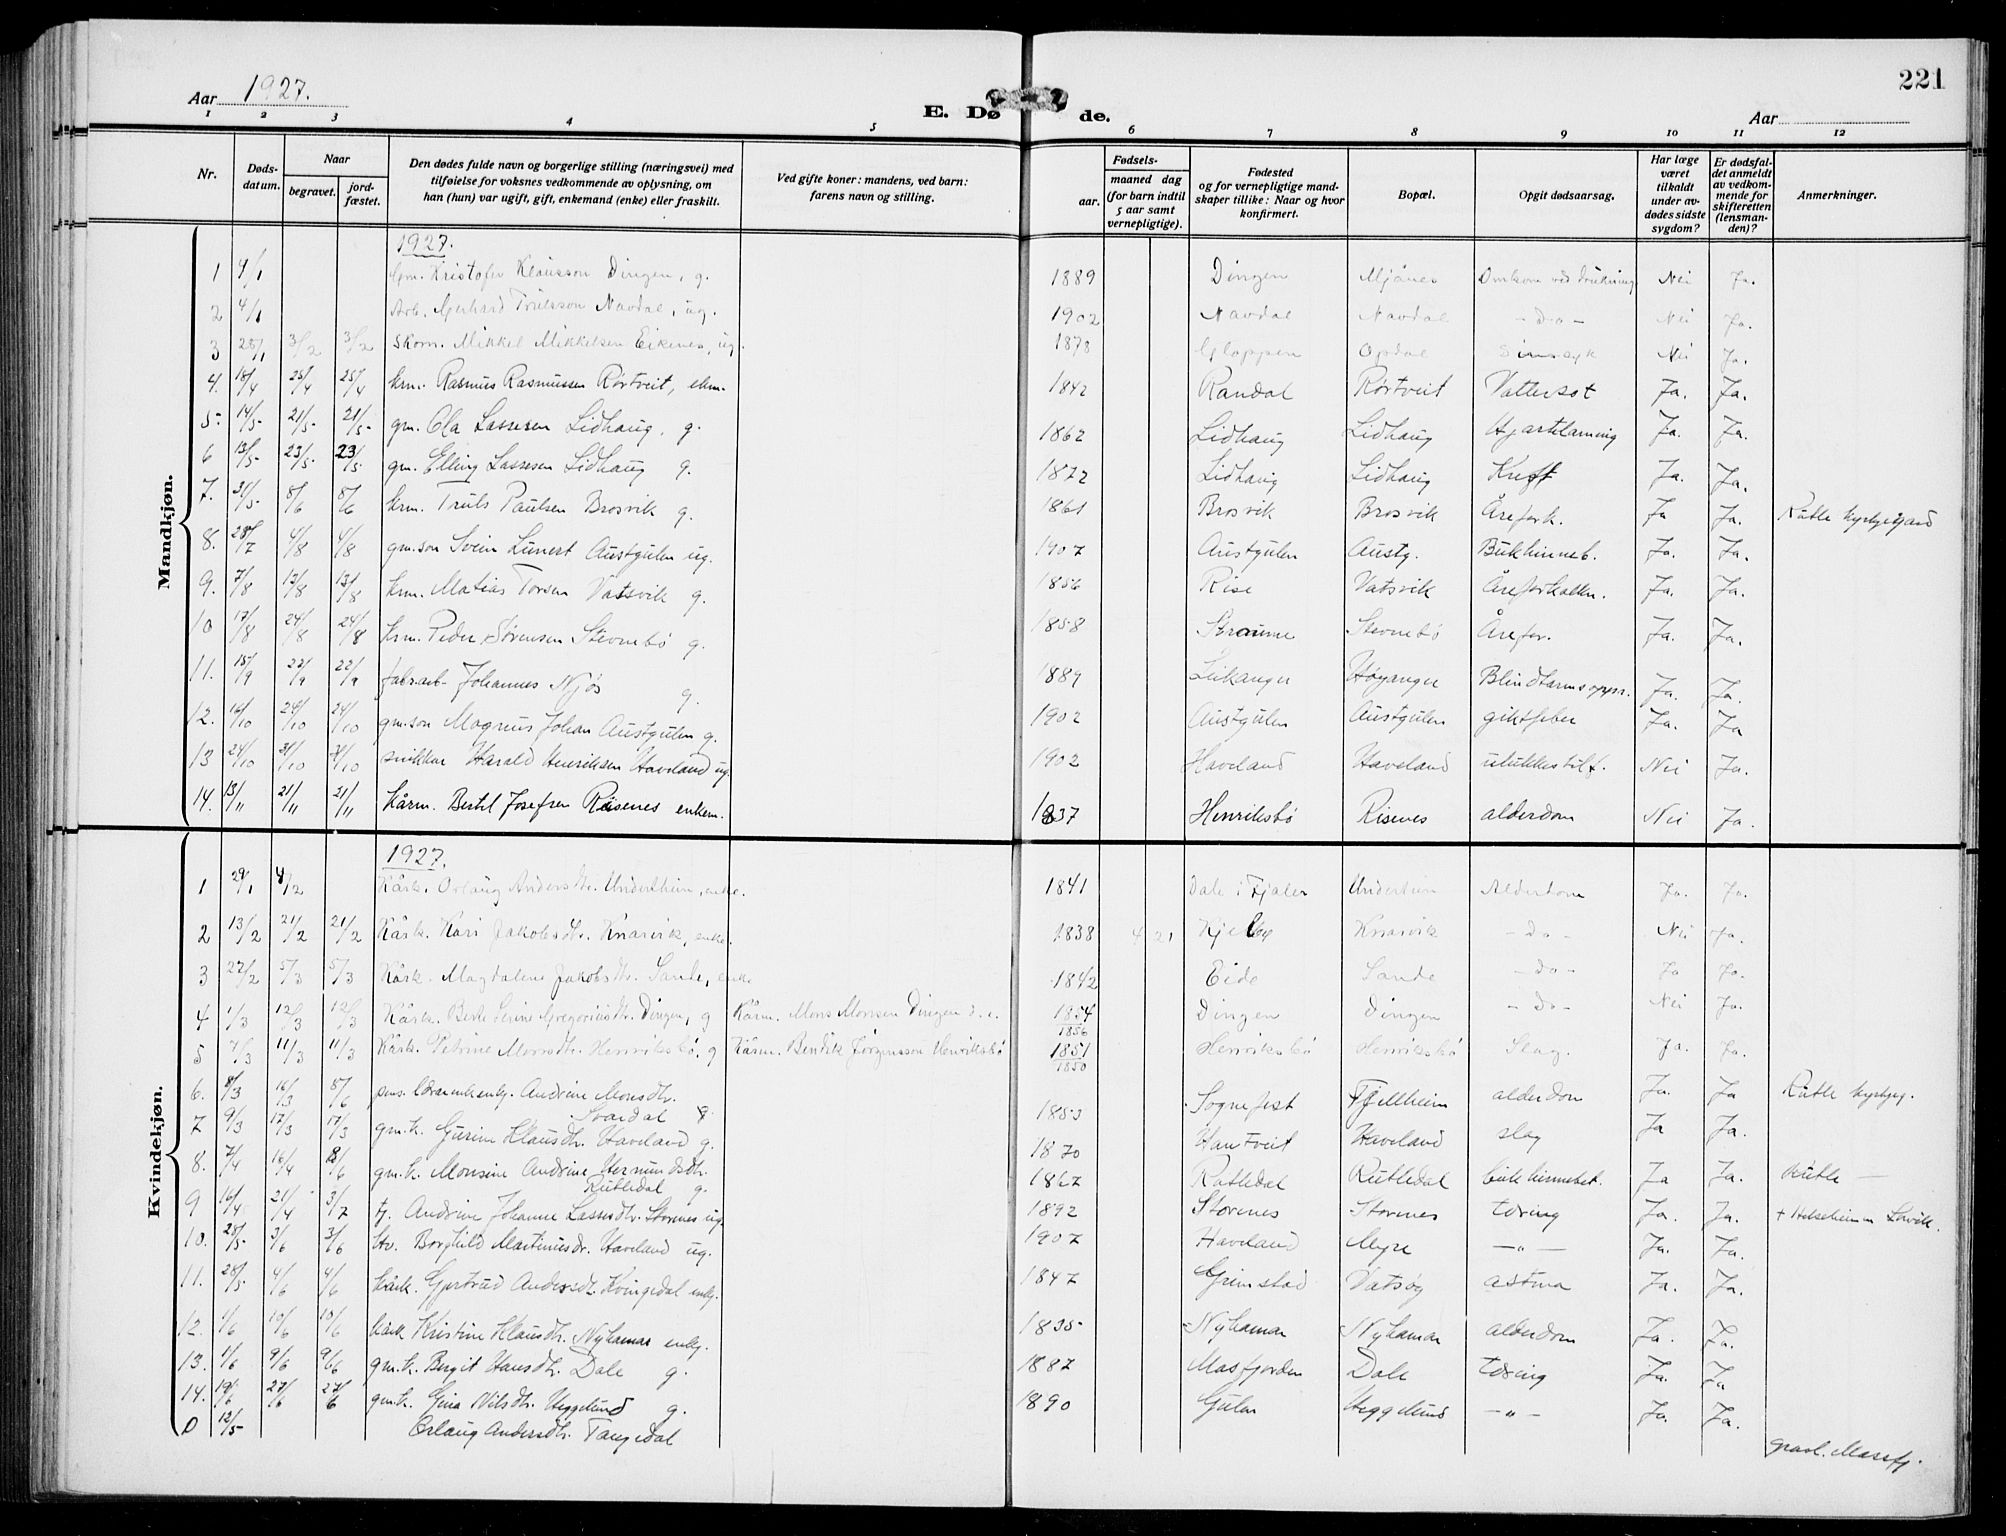 Aar 1927.
221
E. Døde.
Aar
1 2 3 4 5 6 7 8 9 10 11 12
Nr.
Døds-datum.
Naar
begravet.
jord-fæstet.
Den dødes fulde navn og borgerlige stilling (næringsvei) med tilføielse for voksnes vedkommende av oplysning, om han (hun) var ugift, gift, enkemand (enke) eller fraskilt.
Ved gifte koner: mandens, ved barn: farens navn og stilling.
Fødsels-
aar.
maaned dag
(for barn indtil 5 aar samt vernepligtige).
Fødested og for vernepligtige mandskaper tillike: Naar og hvor konfirmert.
Bopæl.
Opgit dødsaarsag.
Har læge været tilkaldt under avdødes sidste sygdom?
Er dødsfaldet anmeldt av vedkommende for skifteretten (lensmanden)?
Anmerkninger.
Mandkjøn.
1927.
1 4/1 Gm. Kristofer Klausson Dingen, g. 1889 Dingen Mjånes Omkom ved drukning Nei Ja.
2 4/1 Arb. Gerhard Trulsson Navdal, ug. 1902 Navdal Navdal - Do - Nei Ja.
3 28/1 3/2 3/2 Skom. Mikkel Mikkelsen Eikenes, ug. 1878 Gloppen Opdal Sinnsyk Nei Ja.
4. 18/4 25/4 25/4 krm. Rasmus Rasmussen Rørtveit, ekm. 1842 Randal Rørtveit Vattersot Ja. Ja.
5 14/5 21/5 21/5 gm. Ola Lassesen Lidhaug, g. 1862 Lidhaug Lidhaug Hjartelaming Ja. Ja.
6 13/5 23/5 23/5 gm. Elling Lassesen Lidhaug g. 1872 Lidhaug Lidhaug Kreft Ja. Ja.
7. 31/5 8/6 8/6 krm. Truls Paulsen Brosvik g. 1861 Brosvik Brosvik Årefork. Ja Ja. Rutle kyrkjegard
8. 28/7 4/8 4/8 gm.son Svein Lunert Austgulen ug. 1907 Austgulen Austg. Bukhinneb. Ja. Ja.
9. 7/8 13/8 13/8 krm. Matias Torsen Vatsvik g. 1856 Rise Vatsvik Åreforkalken. Ja. Ja.
10 17/8 24/8 24/8 krm. Peder Sørensen Stevnebø g. 1858 Straume Stevnebø Årefor. Ja. Ja.
11. 15/9 22/9 22/9 fabr.arb. Johannes Njøs g. 1889 Leikanger Høyanger Blindtarmsoper. Ja. Ja.
12. 16/10 24/10 24/10 gm.son Magnus Johan Austgulen g. 1902 Austgulen Austgulen giktfeber Ja. Ja
13 24/10 31/10 31/10 snikkar Harald Henriksen Haveland ug. 1902 Haveland Haveland ulukkestilf. Nei Ja.
14. 13/11 21/11 21/11 kårm. Bertel Josefsen Risenes enkem. 1837 Henriksbø Risenes alderdom Nei Ja.
Kvindekjøn.
1927.
1 29/1 8/2 Kårk. Orlaug Andersdtr. Undertheim, enke. 1841 Dale i Fjaler Undertheim Alderdom Ja. Ja.
2 13/2 21/2 21/2 Kårk. Kari Jakobsdtr. Knarvik, enke. 1838 4 21 Knarvik - Do - Nei Ja.
3 22/2 5/3 5/3 Kårk. Magdalene Jakobsdtr. Sande, enke. 1842 Eide Sande - Do - Ja Ja.
4 1/3 12/3 12/3 Kårk. Berte Serine Gregoriusdtr. Dingen, g Kårm. Mons Monsen Dingen 1854 1856 Dingen Dingen - Do - Nei Ja.
5 7/3 11/3 11/3 Kårk. Petrine Monsdtr. Henriksbø, g Kårm. Bendik Jørgensson Henriksbø 1851 1850 Henriksbø Henriksbø Slag. Ja. Ja.
6. 8/3 16/3 8/6 Andrine Monsdtr. Svardal g. 1853 Sognefest Fjellheim alderdom Ja. Ja Rutle kyrkjeg.
7 9/3 17/3 17/3 gm.k. Gurine Klausdtr. Haveland g. 1870 Hantveit Haveland slag Ja Ja.
8. 7/4 16/4 8/6 gm.k. Monsine Andrine Hermundsdtr. Rutledal g. 1867 Rutledal Rutledal bukhinnebet. Ja Ja. Rutle —
9 16/4 21/4 3/7 tj. Andrine Johanne Lassesdtr. Storenes ug. 1892 Storenes Storenes tæring Ja. Ja. + Helseheimen Lervik.
10. 28/5 3/6 3/6 Borghild Martinusdr. Haveland ug. 1907 Haveland Myre — " — Ja. Ja.
11. 28/5 4/6 4/6 kårk. Gjertrud Andersdt. Kvingedal enkj. 1847 Grimstad Vatsøy astma Ja. Ja.
12. 1/6 10/6 10/6 kårk Kristine Klausdtr. Nyhamar enkj. 1835 Nyhamar Nyhamar alderdom Ja. Ja.
13. 1/6 9/6 9/6 gm.k. Bergit Hansdtr. Dale g. 1887 Masfjorden Dale tæring Ja. Ja
14. 19/6 27/6 27/6 gm.k. Gina Nilsdtr. Heggelund g. 1890 Gulen Heggelund — " — Ja. Ja.
0 12/5 Orlaug Andersdtr. Tangedal gravl. Masfj.